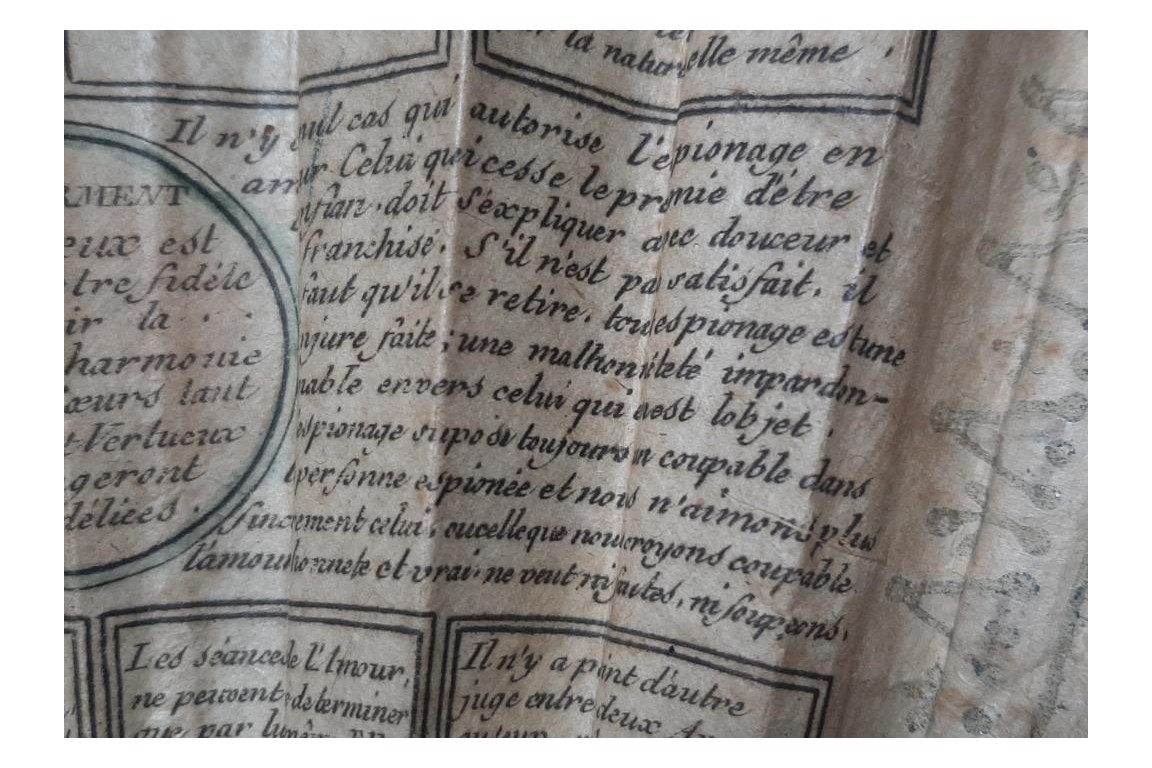 la naturelle même .
Il n'y nul cas qui autorise l'epionage en
amur Celui qui cesse le premie d'étre
onfian. doit s'éxpliquer avec douceur et
franchisé. S'il n'est pa satisfait. il
faut qu'il se retire. tout espionage est une
injure faite; une malhonnêteté impardon-
nable envers celui qui en est lobjet.
espionage supose toujours un coupable dans
personne espionée et nous n'aimons plus
sincerement celui, ou celle que nous croyons coupable.
l'amour honnete et vrai. ne veut ni fautes, ni soupçons.
RMENT
eux est
tre fidéle
ir la . .
harmonie
cœurs tant
t Vertueux
geront
délices.
Les séances de l'Amour,
ne peuvent determiner
que, par lu
Il n'y a point d'autre
juge entre deux